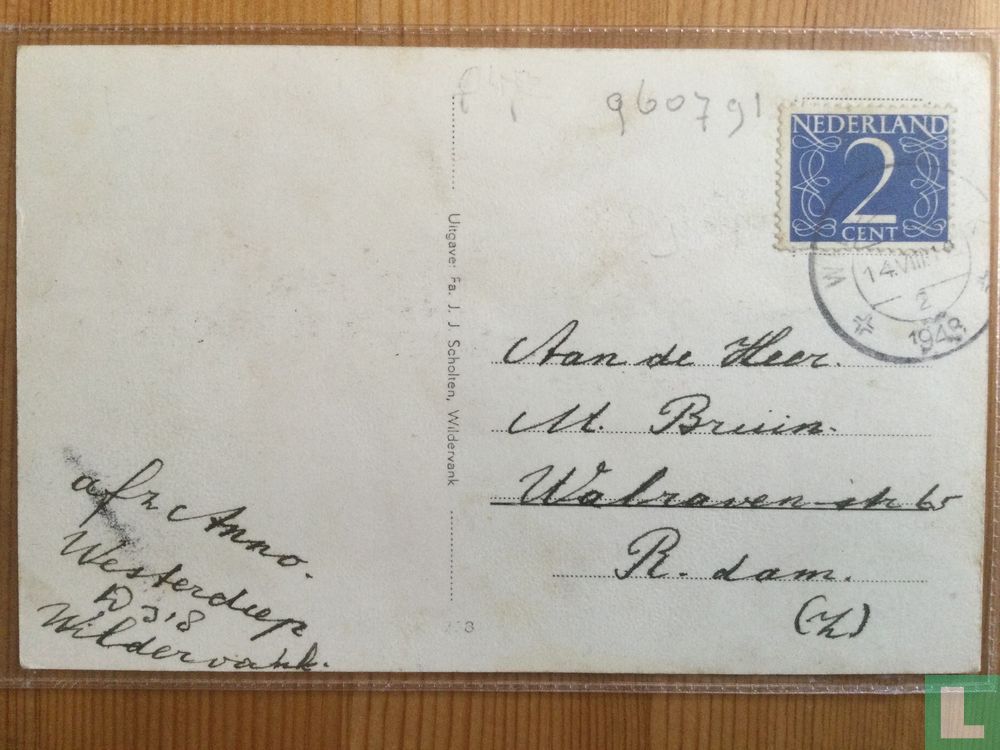 960791
NEDERLAND
2
CENT
14.VIII
2
1948
Uitgave: Fa. J. J. Scholten, Wildervank
Aan de Heer.
M. Bruin.
Walravenstr 65
R. dam.
(Z)
afz Anno.
Westerdiep
Wildervank.
L